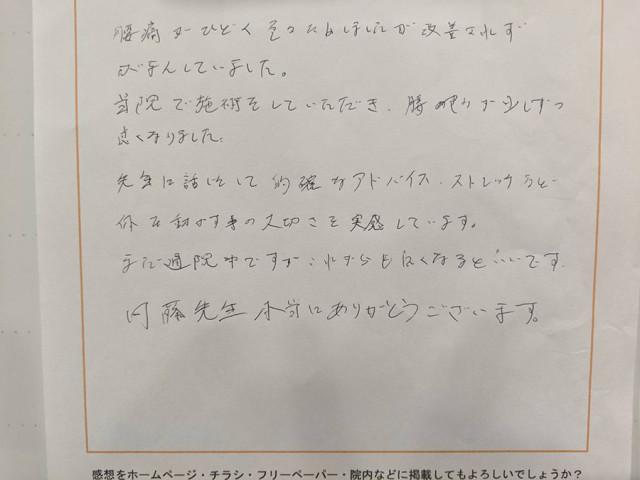 腰痛がひどく、色々ためしましたが改善されず
がまんしていました。
当院で施術をしていただき、腰の痛みが少しずつ
良くなりました。
先生に話をして的確なアドバイス、ストレッチなど
体を動かす事の大切さを実感しています。
まだ通院中ですがこれからも良くなるといいです。
内藤先生本当にありがとうございます。
感想をホームページ・チラシ・フリーペーパー・院内などに掲載してもよろしいでしょうか?